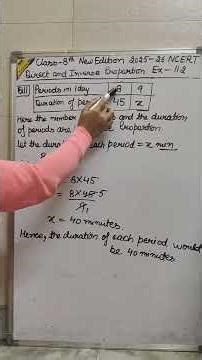 Class-8th New Edition 2025-26 NCERT
Direct and Inverse Proportion Ex-11.2
Periods in 1 day 8 9
Duration of 45 x
Here the number and the duration
of periods are proportion.
let the duration each period = x min
8 × 45
= 8 × 45 5
9 1
x = 40 minutes.
Hence, the duration of each period would
be 40 minutes